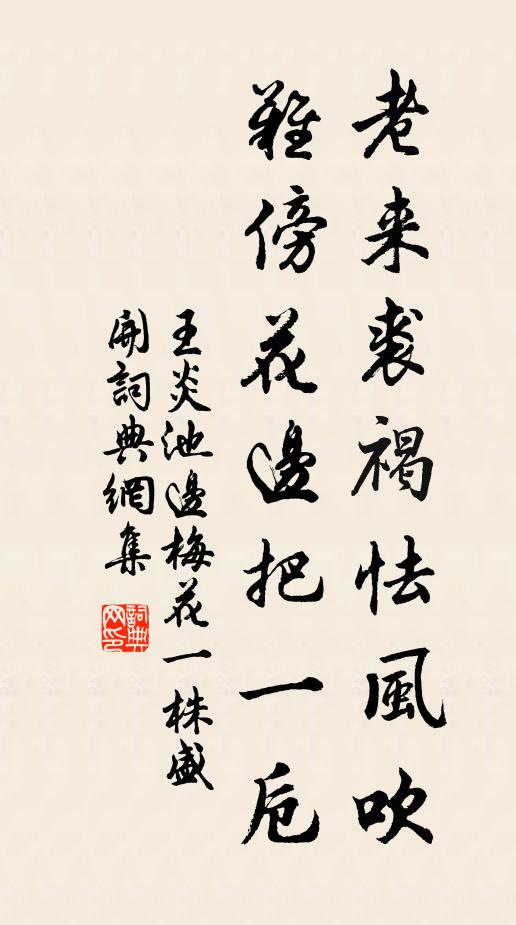 老来裘褐怯風吹
難傍花邊把一卮
王炎池邊梅花一株盛
開詞典網集
詞典網印